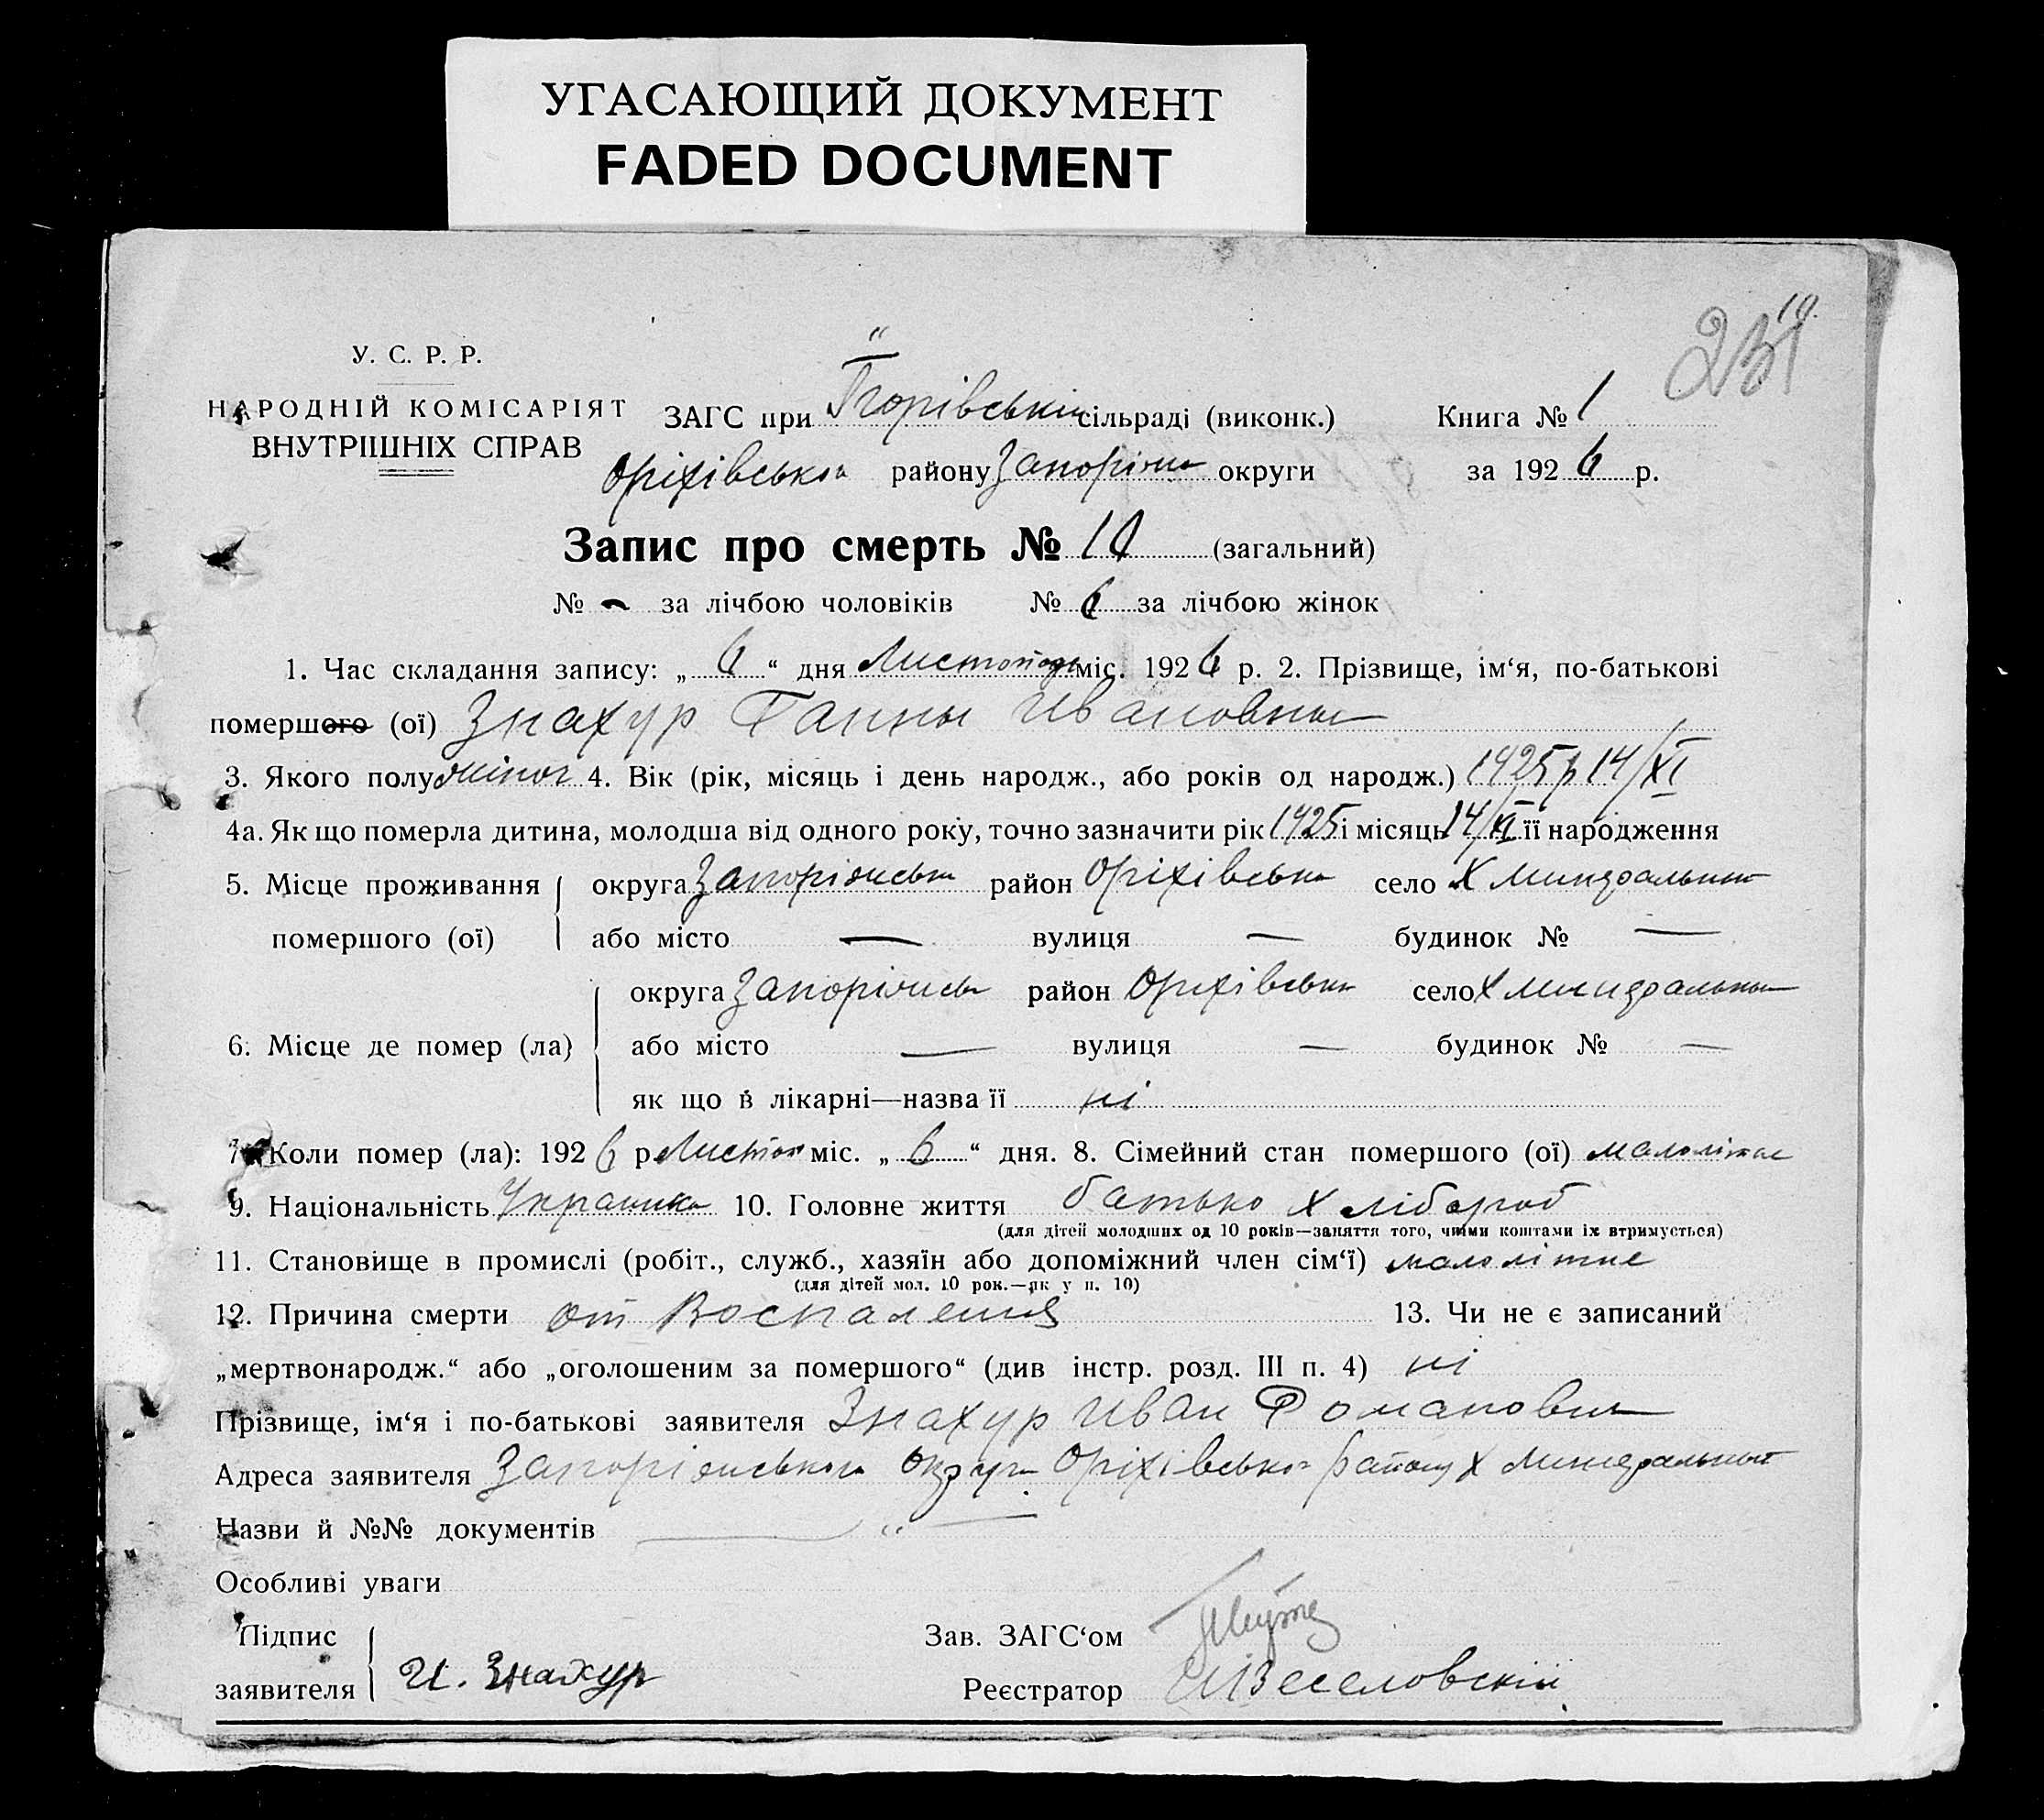 УГАСАЮЩИЙ ДОКУМЕНТ
FADED DOCUMENT
У. С. Р. Р.
НАРОДНІЙ КОМІСАРІЯТ
ВНУТРІШНІХ СПРАВ
ЗАГС при сільраді (виконк.)
Оріхівського району Запоріжж округи
Книга № 1
за 1926 р.
Запис про смерть № 10 (загальний)
№ - за лічбою чоловіків № 6 за лічбою жінок
1. Час складання запису: „6“ дня Листопада міс. 1926 р. 2. Прізвище, ім‘я, по-батькові
помершого (ої) Знахур Ганны Ивановны
3. Якого полу жіноч 4. Вік (рік, місяць і день народж., або років од народж.) 1925 р 14/XI
4а. Як що померла дитина, молодша від одного року, точно зазначити рік 1925 і місяць 14/XI її народження
5. Місце проживання помершого (ої) округа Запоріжська район Оріхівська село Х
або місто — вулиця — будинок № —
6. Місце де помер (ла) округа Запоріжськ район Оріхівська село Х
або місто — вулиця — будинок № —
як що в лікарні—назва її ні
7. Коли помер (ла): 1926 р. Листоп міс. „6“ дня. 8. Сімейний стан помершого (ої) малолітне
9. Національність Украинка 10. Головне життя батько хлібороб
(для дітей молодших од 10 років—заняття того, чиїми коштами їх втримується)
11. Становище в промислі (робіт., служб., хазяїн або допоміжний член сім‘ї) малолітне
(для дітей мол. 10 рок.—як у п. 10)
12. Причина смерти от Воспаления 13. Чи не є записаний
„мертвонародж.“ або „оголошеним за помершого“ (див інстр. розд. III п. 4) ні
Прізвище, ім‘я і по-батькові заявителя Знахур Иван Романович
Адреса заявителя Запоріжського Округи Оріхівського району Х
Назви й №№ документів — „ —
Особливі уваги
Підпис заявителя И. Знахур
Зав. ЗАГС‘ом
Реєстратор Веселовский